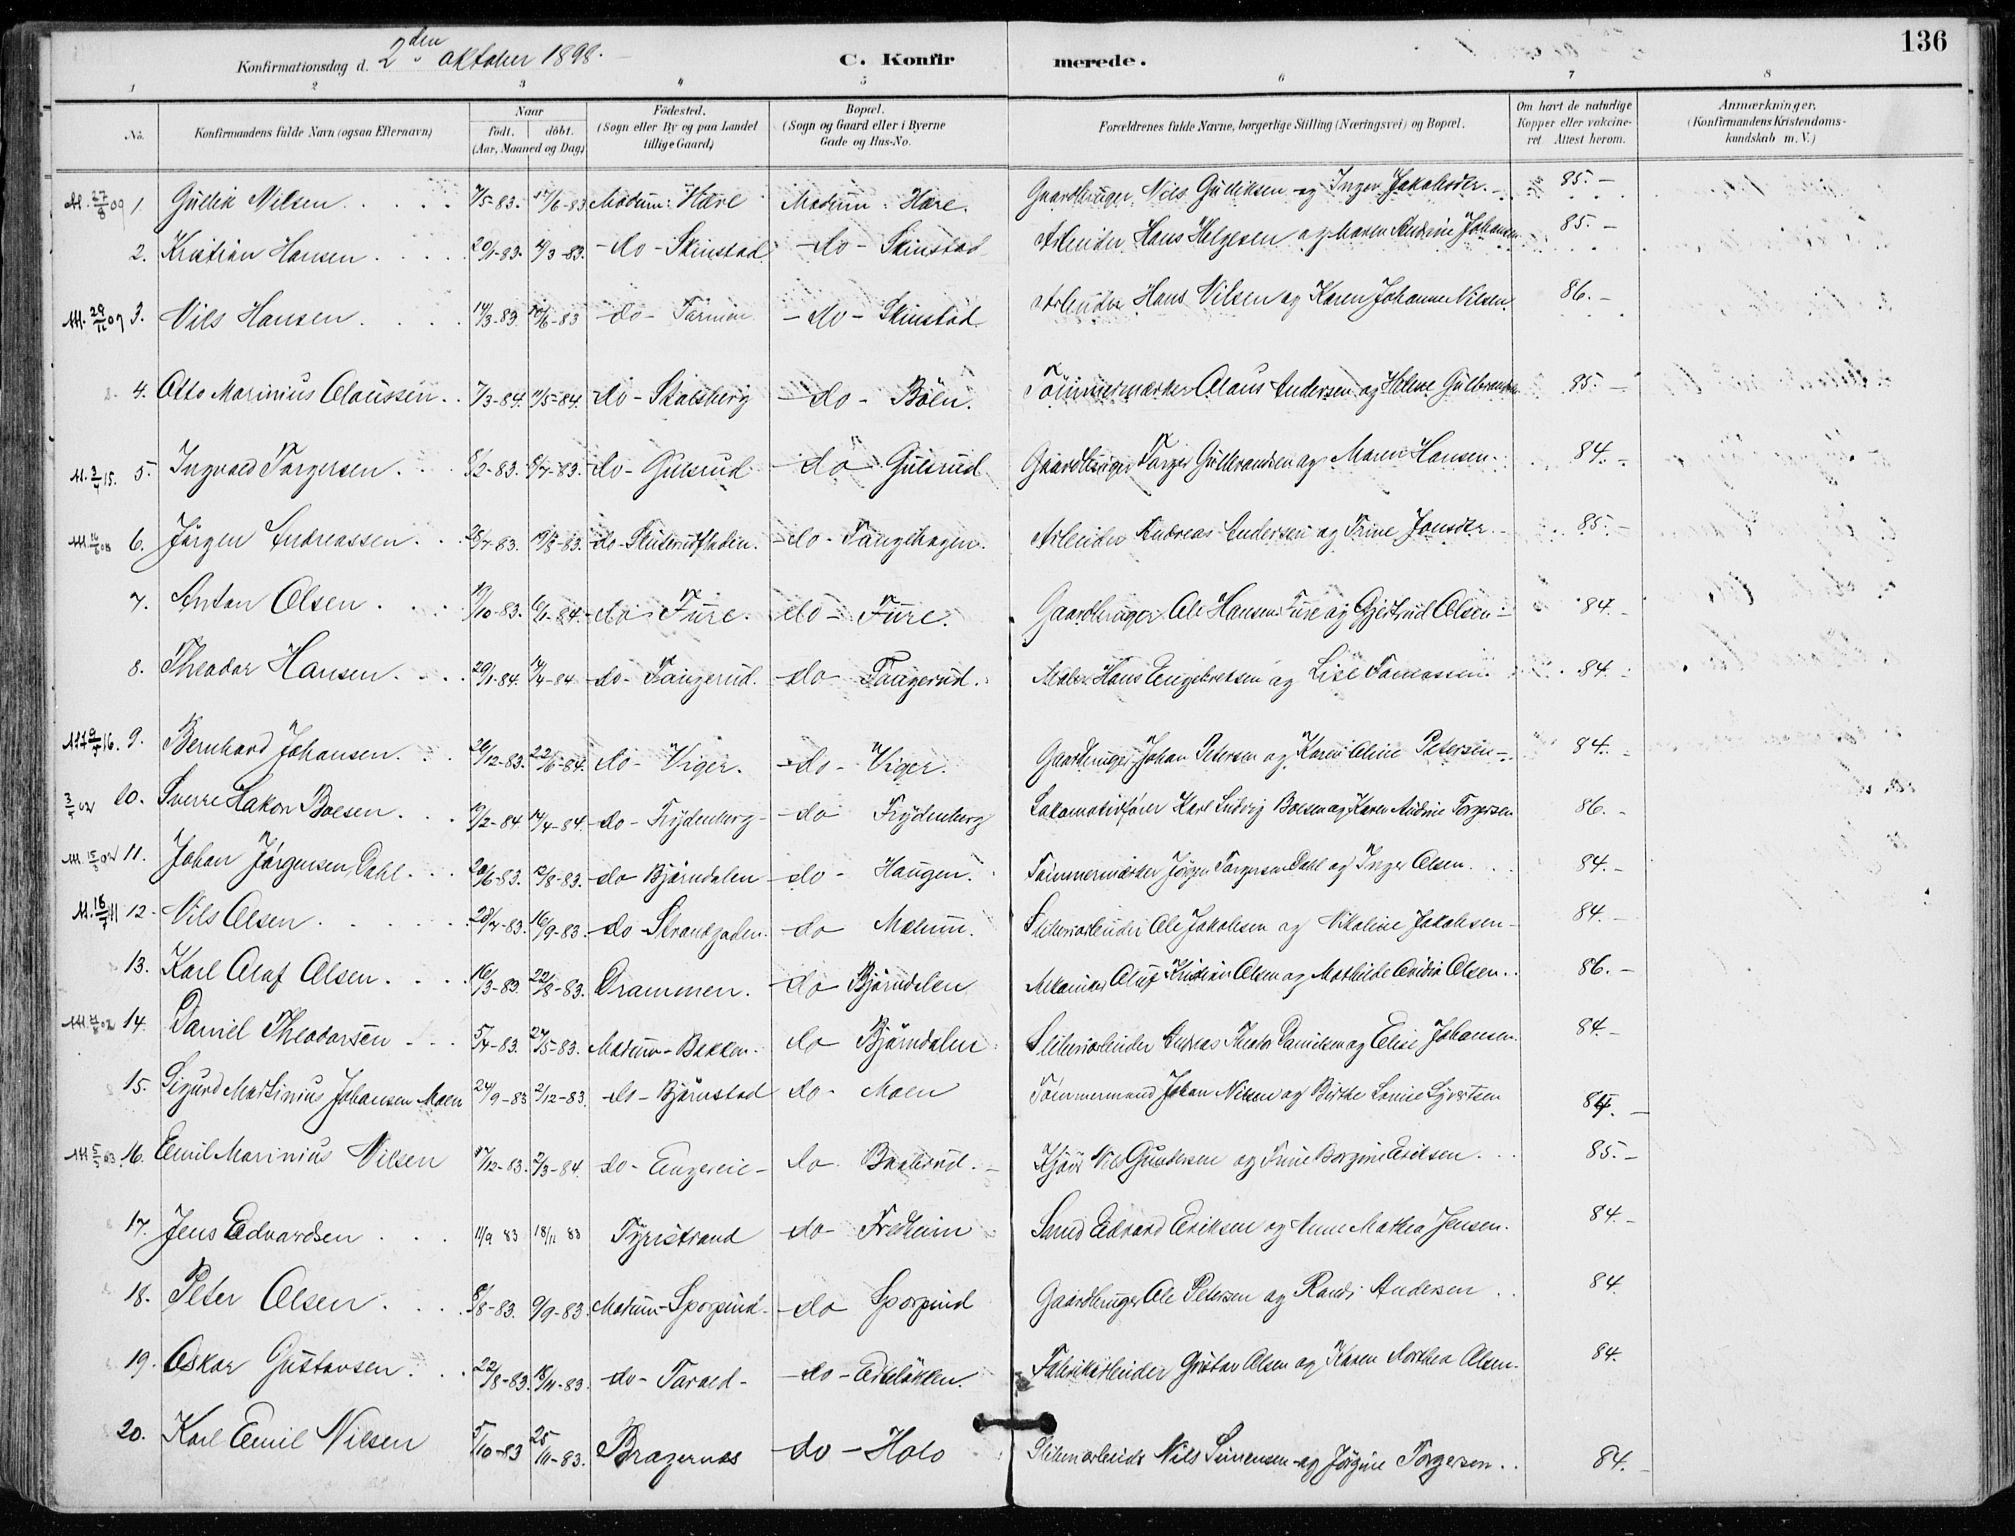 136
Konfirmationsdag d. 2den oktober 1898.
C. Konfirmerede.
1 2 3 4 5 6 7 8
No.
Konfirmandens fulde Navn (ogsaa Efternavn)
Naar født. døbt. (Aar, Maaned og Dag)
Fødested. (Sogn eller By og paa Landet tillige Gaard)
Bopæl. (Sogn og Gaard eller i Byerne Gade og Hus-No.
Forældrenes fulde Navne, borgerlige Stilling (Næringsvei) og Bopæl.
Om havt de naturlige Kopper eller vaccineret Attest herom.
Anmærkninger. (Konfirmandens Kristendomskundskab m. V.)
1. Gullik Nilsen 7/5-83. 17/6-83 Modum: Hære Modum: Hære. Gaardbruger Nils Gulliksen og Inger Jakobsdtr. 85.-
2. Kristian Hansen 20/1-83. 4/3-83. -do- Skinstad -do- Skinstad Arbeider Hans Helgesen og Maren Andrine Johansen 85.-
3. Nils Hansen 14/3-83. -do- -do- Skinstad. Arbeider Hans Nilsen og Karen Johanne Nilsen. 86.-
4. Otto Marinius Olaussen 7/3-84. 11/5-84. -do- Stalsberg -do- Böen. Tömmermærker Olaus Andersen og Helene Gulbrandsen 85.-
5. Ingvald Torgersen 8/2-83. 8/4-83. -do- Gulsrud -do Gulsrud Gaardbruger Torger Gulbrandsen og Maren Hansen. 84.-
6. Jörgen Andreassen 28/4-83. 19/8-83. -do- -do- Arbeider Andreas Andersen og Trine Jonsdtr. 85.-
7. Anton Olsen 19/10-83. 6/1-84. -do Fure. do- Fure. Gaardbruger Ole Hansen Fure og Gjertrud Olsen- 84.-
8. Theodor Hansen 20/1-84. 14/4-84 -do- Taugerud. -do Taugerud. Maler Hans Engebretsen og Lise Tomassen. 84.-
9. Bernhard Johansen 26/12-83. 22/6-84. do- Viger. -do- Viger. Gaardbruger Johan Petersen og Karen Oline Petersen- 84.-
10. Sverre Hakon Boesen 19/2-84. 14/4-84. -do- Frydenberg- -do Frydenberg Lokomotivfører Karl Ludvig Boesen og Karen Andrine Torgersen 86.-
11. Johan Jörgensen Dahl 20/6-83. 12/8-83. -do Björndalen -do- Haugen. Tømmermærker Jörgen Torgersen Dahl og Inger Olsen. 84.-
12. Nils Olsen 28/7-83. 16/9-83. -do- Strandgaden. -do Modum. Sliberiarbeider Ole Jakobsen og Nikoline Jakobsen- 84.-
13. Karl Olaf Olsen 16/3-83. 22/8-83. Drammen. -do Björndalen Mekaniker Oluf Kristian Olsen og Mathilde Olsen. 86.-
14. Daniel Theodorsen 5/4-83. 27/5-83. Modum- Bakken. do Björndalen Sliberiarbeider Andreas Theodor Danielsen og Elise Johansen. 84.-
15. Sigurd Martinius Johansen Moen 24/9-83 2/12-83. do- Björnstad do- Moen Tömmermand Johan Nilsen og Birthe Lovise Syvertsen 84.-
16. Emil Marinius Nilsen 17/12-83. 2/3-84. -do- do. Kjører Nils Gundersen og Trine Borgine Eriksen. 85.-
17. Jens Edvardsen 11/9 83 18/11 83 Tyristrand do- Fredheim Smed Edvard Eriksen og Anne Mathea Jensen. 84.-
18. Peter Olsen 8/8-83. 9/9-83. Modum- Sporpind- -do Sporpind Gaardbruger Ole Petersen og Randi Andersen 84.
19. Oskar Gustavsen 22/8-83. 18/11-83. -do- -do- Fabrikarbeider Gustav Olsen og Karen Dorthea Olsen. 84.
20. Karl Emil Nilsen 5/10-83 25/11-83. Bragernes -do- Holo Sliberiarbeider Nils Simensen og Jørgine Torgersen. 84.-